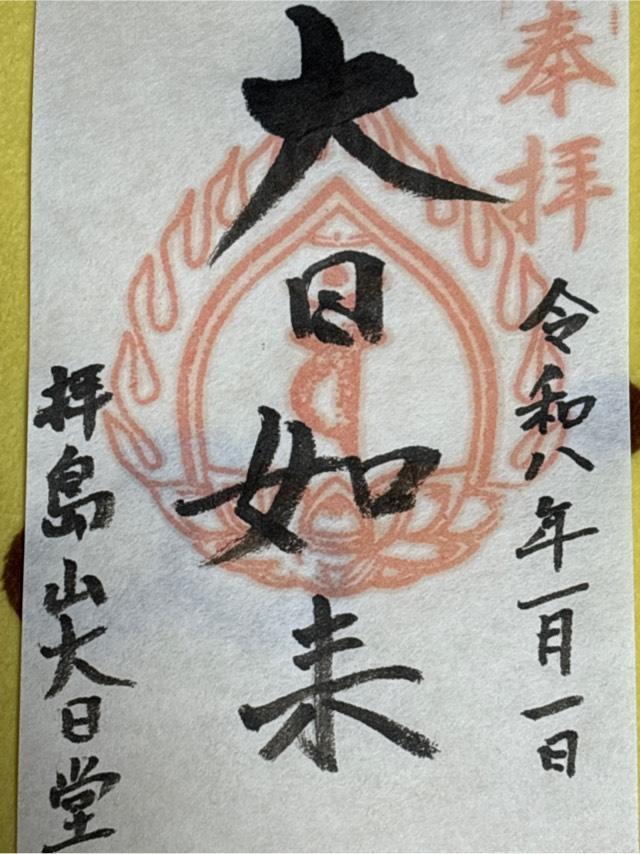 奉拝
令和八年一月一日
大日如来
拝島山大日堂